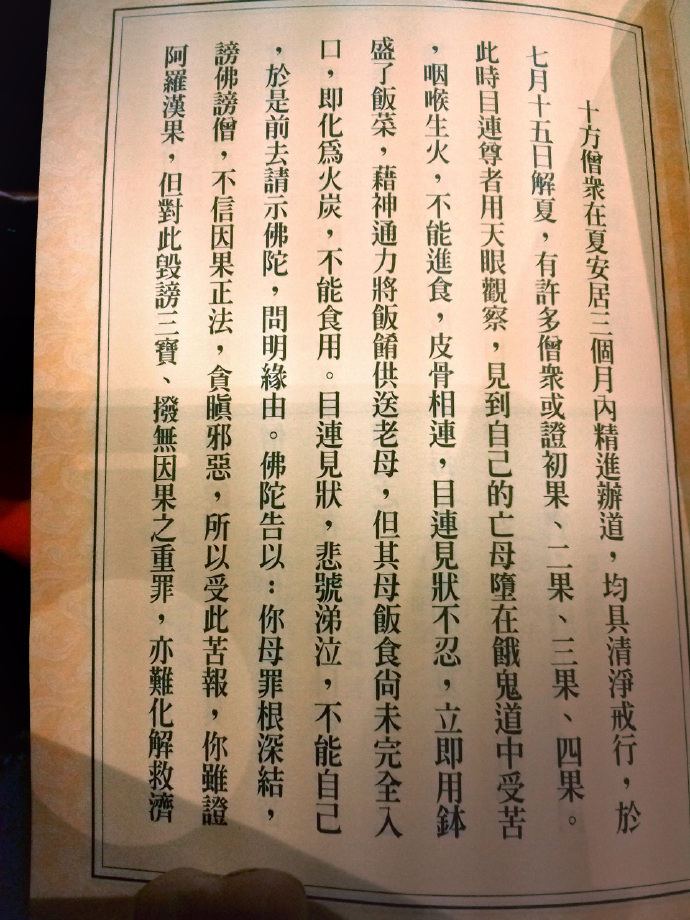 十方僧衆在夏安居三個月內精進辦道，均具清淨戒行，於
七月十五日解夏，有許多僧衆或證初果、二果、三果、四果。
此時目連尊者用天眼觀察，見到自己的亡母墮在餓鬼道中受苦
，咽喉生火，不能進食，皮骨相連，目連見狀不忍，立即用鉢
盛了飯菜，藉神通力將飯餚供送老母，但其母飯食尚未完全入
口，即化爲火炭，不能食用。目連見狀，悲號涕泣，不能自己
，於是前去請示佛陀，問明緣由。佛陀告以：你母罪根深結，
謗佛謗僧，不信因果正法，貪瞋邪惡，所以受此苦報，你雖證
阿羅漢果，但對此毀謗三寶、撥無因果之重罪，亦難化解救濟